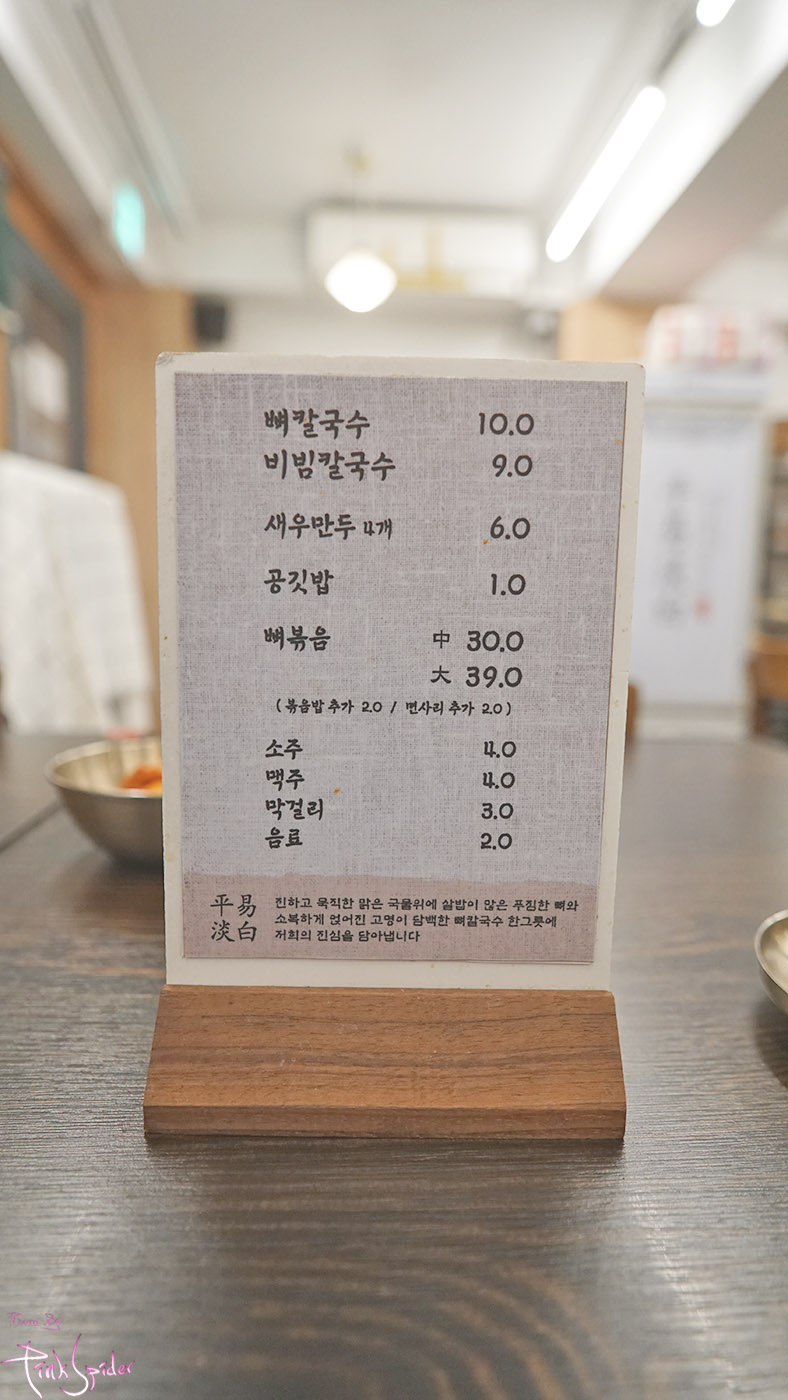 뼈칼국수 10.0
비빔칼국수 9.0
새우만두 4개 6.0
공깃밥 1.0
뼈볶음 中 30.0
大 39.0
( 볶음밥 추가 2.0 / 면사리 추가 2.0 )
소주 4.0
맥주 4.0
막걸리 3.0
음료 2.0
平易
淡白
진하고 묵직한 맑은 국물위에 살밥이 많은 푸짐한 뼈와
소복하게 얹어진 고명이 담백한 뼈칼국수 한그릇에
저희의 진심을 담아냅니다
PinkSpider